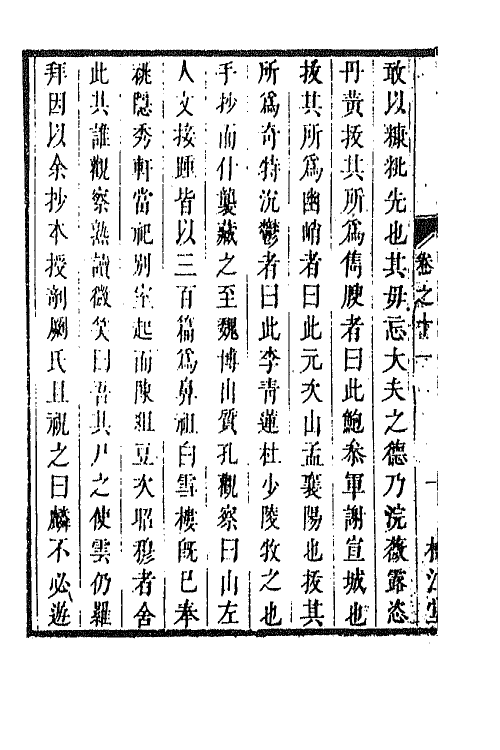 卷之十一
敢以糠粃先也其毋忘大夫之德乃浣薇露恣
丹黃拔其所爲雋腴者曰此鮑參軍謝宣城也
拔其所爲幽峭者曰此元次山孟襄陽也拔其
所爲奇特沉鬱者曰此李青蓮杜少陵牧之也
手抄而什襲藏之至魏博山質孔觀察曰山左
人文接踵皆以三百篇爲鼻祖白雪樓既已奉
祧隱秀軒當祀别室起而陳俎豆次昭穆者舍
此其誰觀察熟讀微笑曰吾其尸之使雲仍羅
拜因以余抄本授剞劂氏且祝之曰麟不必遊